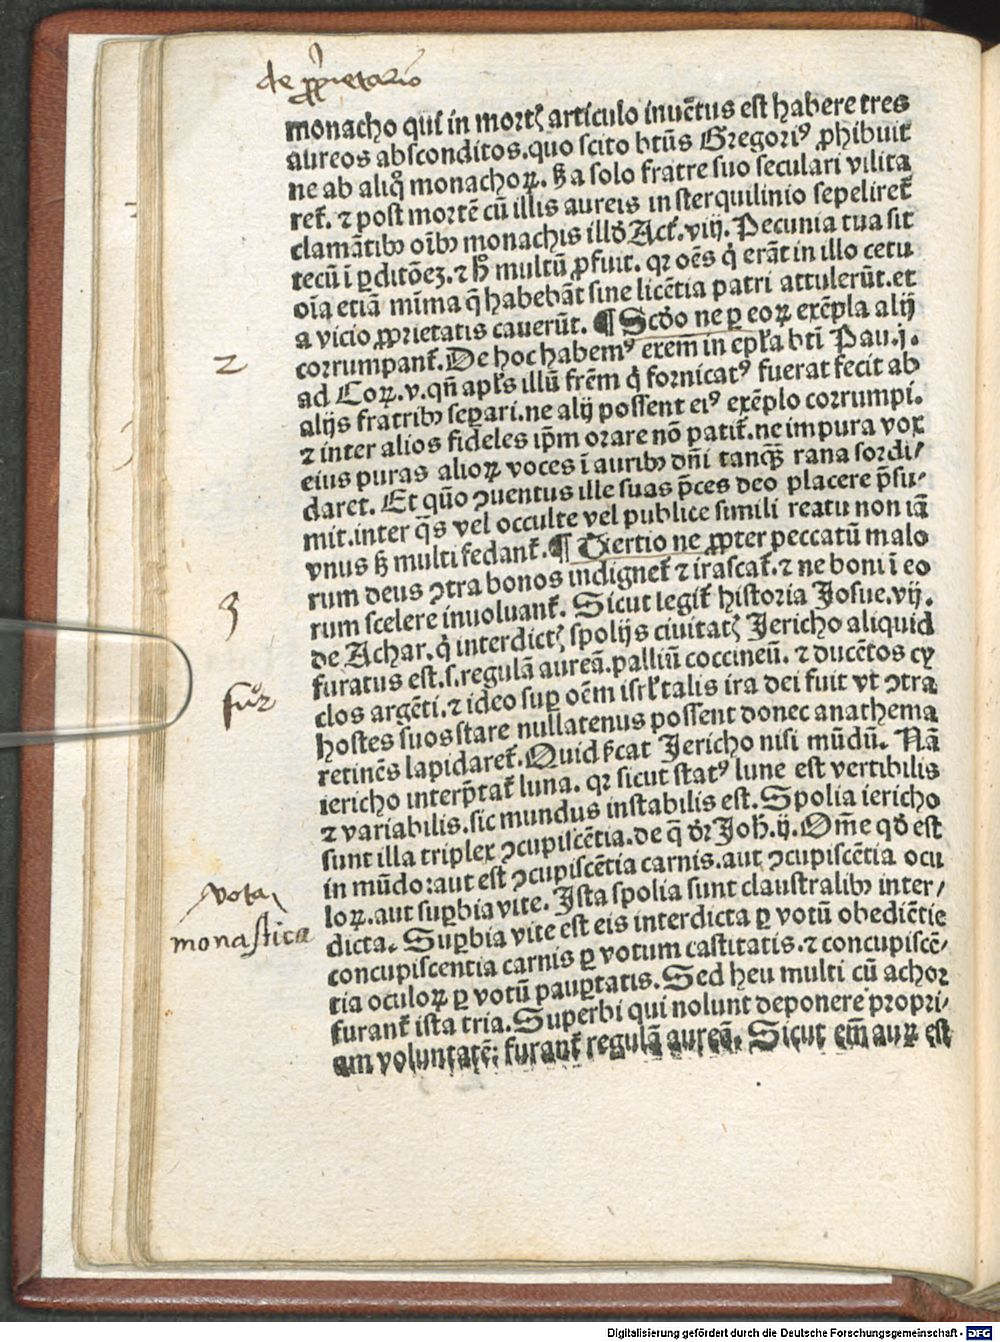 de ꝓprietario
monacho qui in mortꝭ articulo inuētus est habere tres
aureos absconditos.quo scito btūs Gregoriꝰ ꝓhibuit
ne ab aliqͦ monachoꝝ. sꝫ a solo fratre suo seculari vilita
ret̉. ⁊ post mortē cū illis aureis in sterquilinio sepeliret̉
clamātibꝰ oībꝰ monachis illđ Act̉. viij. Pecunia tua sit
tecū ī ꝑditōeꝫ. ⁊ hͦ multū ꝓfuit. qꝛ oēs q̇ erāt in illo cetu
oīa etiā mīma q̄ habebāt sine licētia patri attulerūt. et
a vicio ꝓprietatis cauerūt. ¶ Scđo ne ꝑ eoꝝ exēpla alij
corrumpant̉. De hoc habemꝰ exem̄ in epl̄a bti Pau.j.
2
ad Coꝝ.v.qn̄ apl̄s illū frēm q̇ fornicatꝰ fuerat fecit ab
alijs fratribꝰ seꝑari.ne alij possent eiꝰ exēplo corrumpi.
⁊ inter alios fideles ip̄m orare nō patit̉.ne impura vox
eius puras alioꝝ voces ī auribꝰ dn̄i tanqꝫ rana sordi⸗
daret. Et qūo ꝯuentus ille suas p̄ces deo placere p̄su⸗
mit.inter q̄s vel occulte vel publice simili reatu non iā
vnus sꝫ multi fedant̉. ¶ Tertio ne ꝓpter peccatū malo
rum deus ꝯtra bonos indignet̉ ⁊ irascat̉. ⁊ ne boni ī eo
rum scelere inuoluant̉. Sicut legit̉ historia Josue.vij.
3
de Achar. q̇ interdictꝭ spolijs ciuitatꝭ Jericho aliquid
furatus est.s.regulā aureā.palliū coccineū. ⁊ ducētos cy
fur
clos argēti. ⁊ ideo suꝑ oēm isrl̄ talis ira dei fuit vt ꝯtra
hostes suos stare nullatenus possent donec anathema
retinēs lapidaret̉. Quid sꝭcat Jericho nisi mūdū. Nā
iericho interp̄tat̉ luna. qꝛ sicut statꝰ lune est vertibilis
⁊ variabilis.sic mundus instabilis est. Spolia iericho
sunt illa triplex ꝯcupiscētia.de q̄ dr̄ Joh̄.ij. Om̄e qđ est
in mūdo:aut est ꝯcupiscētia carnis.aut ꝯcupiscētia ocu
vota
loꝝ.aut suꝑbia vite. Ista spolia sunt claustralibꝰ inter⸗
monasticæ
dicta. Suꝑbia vite est eis interdicta ꝑ votū obediētie
concupiscentia carnis ꝑ votum castitatis. ⁊ concupiscē⸗
tia oculoꝝ ꝑ votū pauꝑtatis. Sed heu multi cū achor
furant̉ ista tria. Superbi qui nolunt deponere propri⸗
am voluntatē: furant̉ regulā aureā. Sicut em̄ auꝝ est
Digitalisierung gefördert durch die Deutsche Forschungsgemeinschaft - DFG